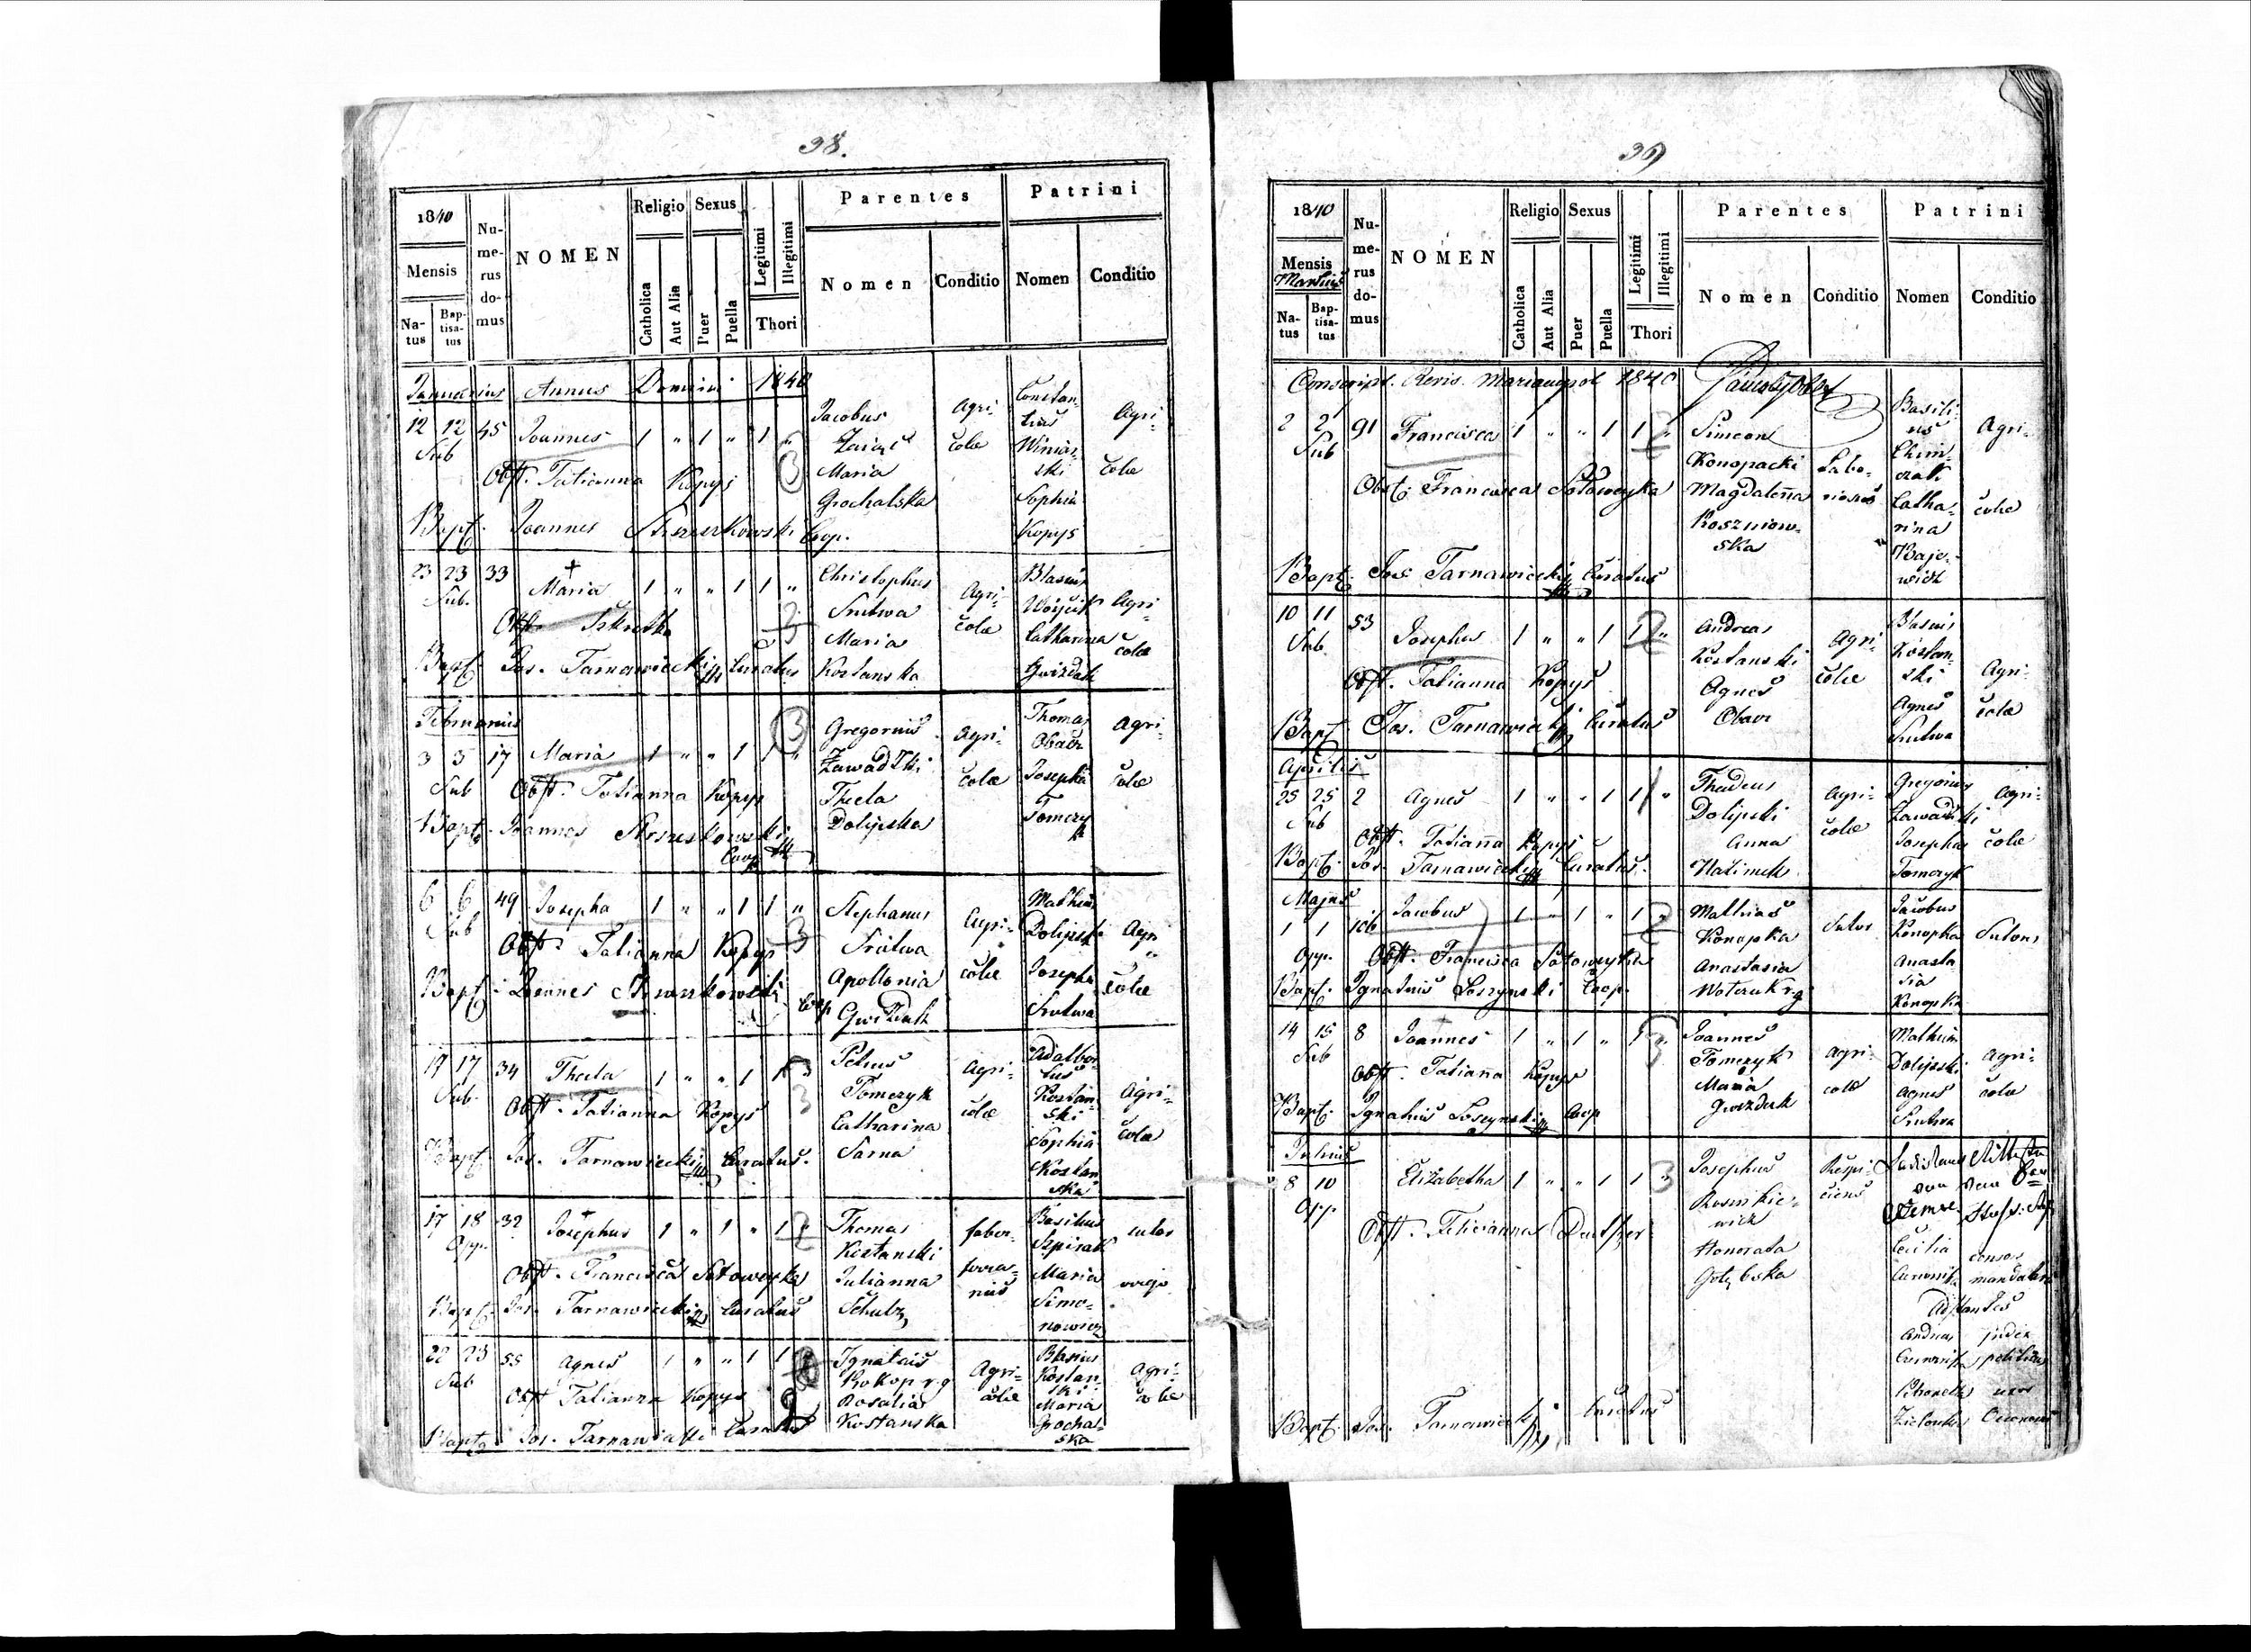 38.
1840
Mensis
Natus
Baptisatus
Numerus domus
NOMEN
Religio
Catholica
Aut Alia
Sexus
Puer
Puella
Legitimi
Illegitimi
Thori
Parentes
Nomen
Conditio
Patrini
Nomen
Conditio
Januarius Annus Domini 1840
12 12 45 Joannes 1 " 1 " 1 "
Sub
Obst. Tatianna Kopys
Bapt. Joannes Coop.
Jacobus
Zając
Maria
Grochalska
Agri-
colae
Constan-
tius
Winiar-
ski
Sophia
Kopys
Agri-
colae
23 23 33 Maria 1 " " 1 1 "
Sub.
Obst.
Bapt. Jos. Tarnawiecki Curatus
Christophus
Srutwa
Maria
Kostanska
Agri-
colae
Blasius
Wojcik
Catharina
Gwizdak
Agri-
colae
Februarius
3 5 17 Maria 1 " " 1 1 "
Sub
Obst. Tatianna Kopys
Bapt. Joannes
Coop
Gregorius
Zawadzki
Thecla
Dolipska
Agri-
colae
Thomas
Obacz
Josepha
Tomczy
k
Agri-
colae
6 6 49 Josepha 1 " " 1 1 "
Sub
Obst. Tatianna Kopys
Bapt. Joannes Coop
Stephanus
Srutwa
Apollonia
Gwizdak
Agri-
colae
Matheus
Dolipski
Josepha
Srutwa
Agri
colae
17 17 34 Thecla 1 " " 1 1
Sub.
Obst. Tatianna Kopys
Bapt. Jos. Tarnawiecki Curatus.
Petrus
Tomczyk
Catharina
Sarna
Agri-
colae
Adalber-
tus
Kostan-
ski
Sophia
Kostan
ska
Agri-
colae
17 18 32 Josephus 1 " 1 " 1 "
Opp.
Obst. Francisca Sotoweyka
Bapt. Jos. Tarnawiecki Curatus
Thomas
Kostanski
Julianna
Schulz
faber
Basilius
Szpirak
Maria
Simo-
nowicz
sutor
virgo
22 23 55 Agnes 1 " " 1 1
Sub
Obst Tatianna Kopys
Bapt. Jos. Tarnawiecki Curatus
Ignatius
Prokop r.g.
Rosalia
Kostanska
Agri-
colae
Blasius
Kostan-
ski
Maria
Grochal-
ska
Agri-
colae
39
1840
Mensis
Martius
Natus
Baptisatus
Numerus domus
NOMEN
Religio
Catholica
Aut Alia
Sexus
Puer
Puella
Legitimi
Illegitimi
Thori
Parentes
Nomen
Conditio
Patrini
Nomen
Conditio
Conscript. Revis. Mariampol 1840
2 2 91 Francisca 1 " " 1 1 "
Sub
Obst. Francisca Sotoweyka
Bapt. Jos. Tarnawiecki Curatus
Simeon
Konopacki
Magdalenna
Roszniow-
ska
Labo-
riosus
Basili-
us
Catha-
rina
Baje-
wicz
Agri-
colae
10 11 53 Josephus 1 " " 1 1 "
Sub.
Obst. Tatianna Kopys
Bapt. Jos. Tarnawiecki Curatus
Andreas
Kostanski
Agnes
Obacz
Agri-
colae
Blasius
Kostan-
ski
Agnes
Srutwa
Agri-
colae
Aprilis
25 25 2 Agnes 1 " " 1 1 "
Sub
Obst. Tatianna Kopys
Bapt. Jos. Tarnawiecki Curatus.
Thadeus
Dolipski
Anna
Halimek
Agri-
colae
Gregorius
Zawadzki
Josepha
Tomczyk
Agri-
colae
Majus
1 1 106 Jacobus 1 " 1 " 1 "
Opp.
Obst. Francisca Sotoweyka
Bapt. Ignatius Loszynski Coop.
Mathias
Konopka
Anastasia
r.g
Sutor
Jacobus
Konopka
Anasta
sia
Konopka
Sutoris
14 15 8 Joannes 1 " 1 " 1 "
Sub
Obst. Tatianna Kopys
Bapt. Ignatius Loszynski Coop
Joannes
Tomczyk
Maria
Gwizdak
Agri-
colae
Matheus
Dolipski
Agnes
Srutwa
Agri-
colae
Julius
8 10 Elizabetha 1 " " 1 1 "
Opp.
Obst. Felicianna
Bapt. Jos. Tarnawiecki Curatus
Josephus
Rusinkie-
wicz
Honorata
Gołębska
Respi-
ciens
Ladislaus
von
Cecilia
consors
mandatarii
Adstantes
Andreas
judex
politicus
Petronella
uxor